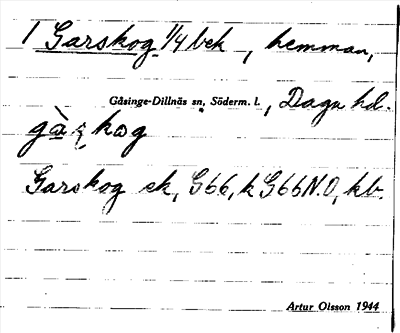 1 Garskog 1/4 bek, hemman,
Gåsinge-Dillnäs sn, Söderm. l., Daga hd.
Garskog ek, G66, k G66 N.O, kb.
Artur Olsson 1944